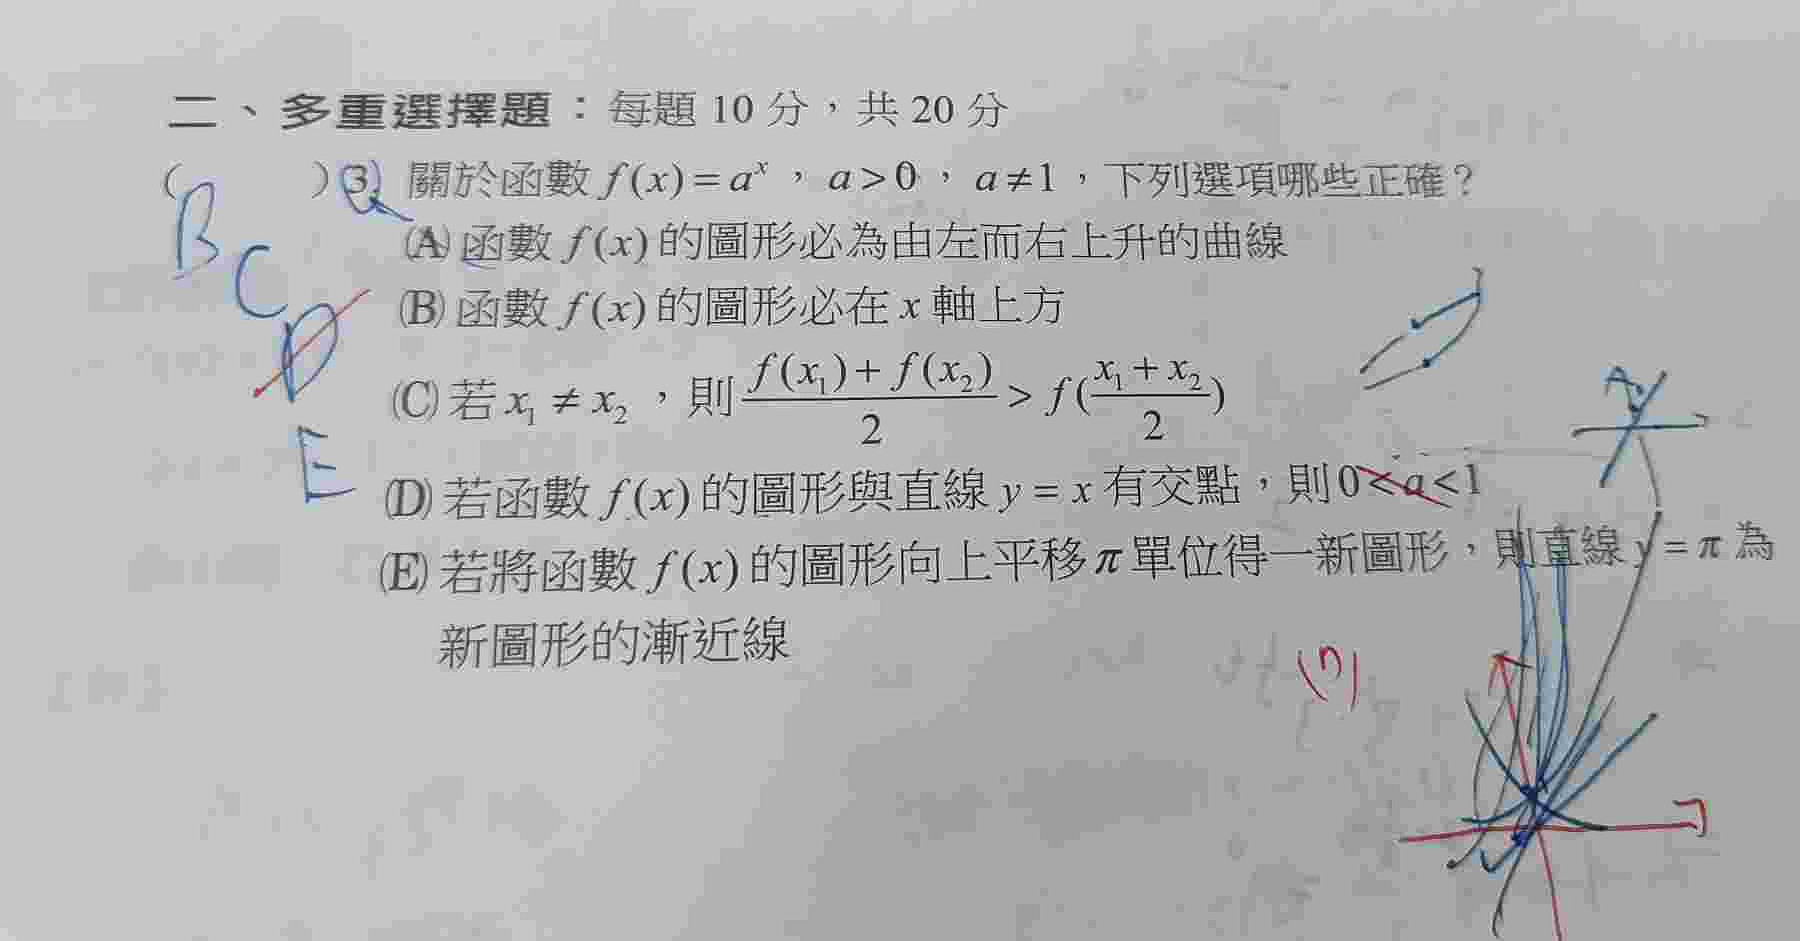 二、多重選擇題：每題 10 分，共 20 分
( BCDE ) 3. 關於函數 f(x) = aˣ ， a > 0 ， a ≠ 1 ，下列選項哪些正確？
(A) 函數 f(x) 的圖形必為由左而右上升的曲線
(B) 函數 f(x) 的圖形必在 x 軸上方
(C) 若 x₁ ≠ x₂ ，則 (f(x₁) + f(x₂))/2 > f((x₁ + x₂)/2)
(D) 若函數 f(x) 的圖形與直線 y = x 有交點，則 0 < a < 1
(E) 若將函數 f(x) 的圖形向上平移 π 單位得一新圖形，則直線 y = π 為
新圖形的漸近線